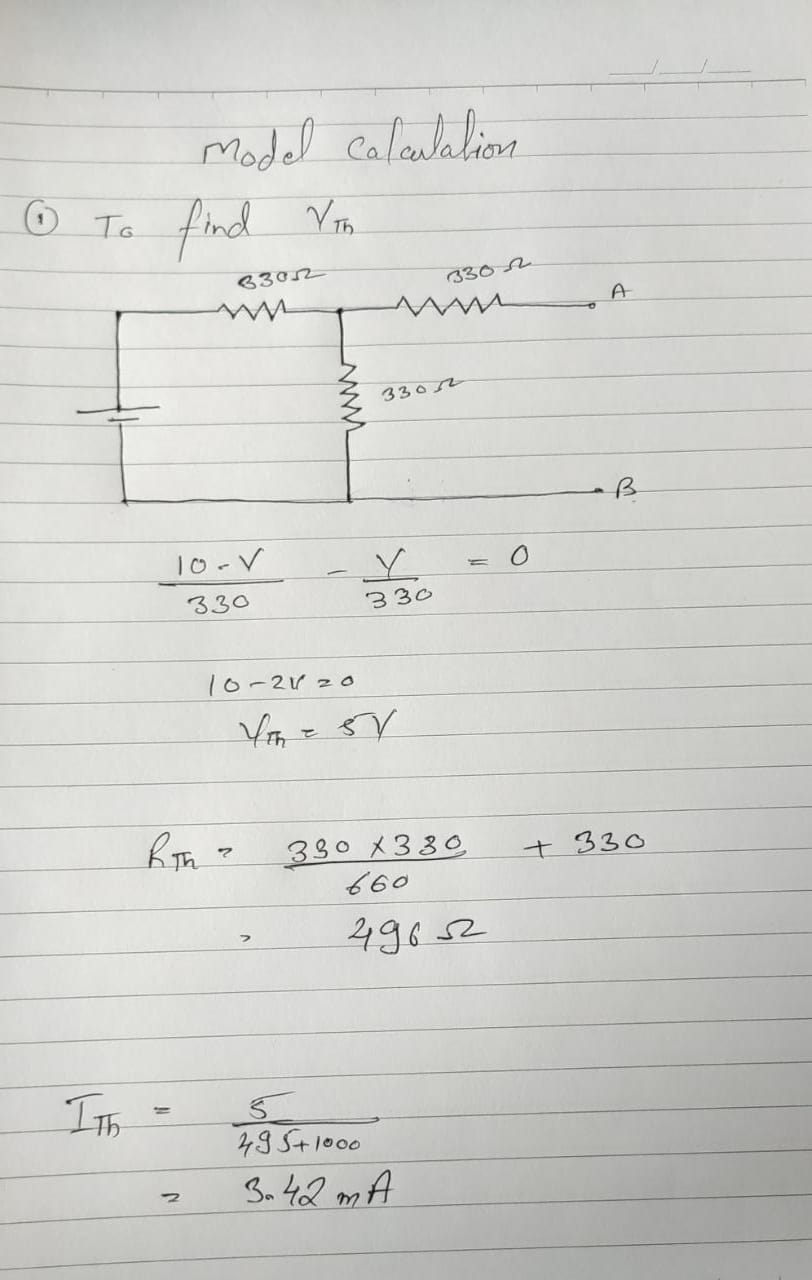 Model Calculation
① To find VTh
330Ω 330Ω A
330Ω
B
10-V/330 - V/330 = 0
10-2V=0
VTh = 5V
RTh = 330 x 330/660 + 330
= 496 Ω
ITh = 5/495+1000
= 3.42 mA